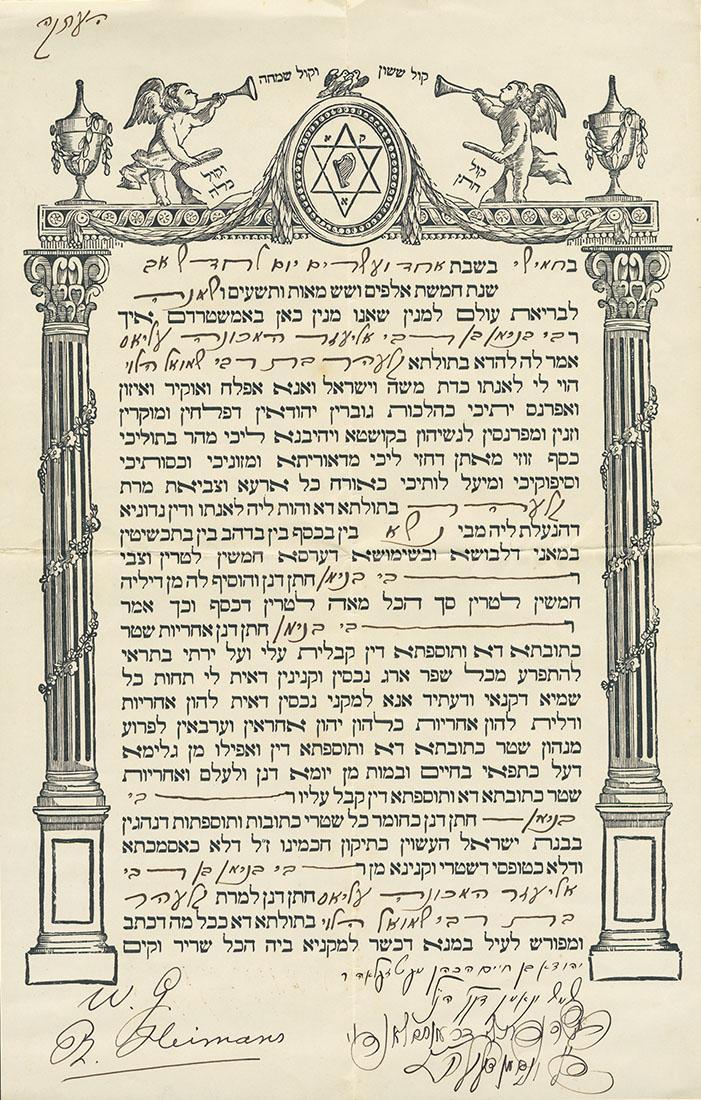 העתקה
קול ששון וקול שמחה
קול חתן וקול כלה
ק א
א
בחמישי בשבת אחד ועשרים יום לחדש אב
שנת חמשת אלפים ושש מאות ותשעים ושמנה
לבריאת עולם למנין שאנו מנין כאן באמשטרדם איך
רבי בנימן בן רבי אליעזר המכונה עליאס
אמר לה להדא בתולתא קלערה בת רבי שמואל הלוי
הוי לי לאנתו כדת משה וישראל ואנא אפלח ואוקיר ואיזון
ואפרנס יתיכי כהלכות גוברין יהודאין דפלחין ומוקרין
וזנין ומפרנסין לנשיהון בקושטא ויהיבנא ליכי מהר בתוליכי
כסף זוזי מאתן דחזי ליכי מדאוריתא ומזוניכי וכסותיכי
וסיפוקיכי ומיעל לותיכי כאורח כל ארעא וצביאת מרת
קלערה בתולתא דא והות ליה לאנתו ודין נדוניא
דהנעלת ליה מבי נשא בין בכסף בין בדהב בין בתכשיטין
במאני דלבושא ובשימושא דערסא חמשין לטרין וצבי
רבי בנימן חתן דנן והוסיף לה מן דיליה
חמשין לטרין סך הכל מאה לטרין דכסף וכך אמר
רבי בנימן חתן דנן אחריות שטר
כתובתא דא ותוספתא דין קבלית עלי ועל ירתי בתראי
להתפרע מכל שפר ארג נכסין וקנינין דאית לי תחות כל
שמיא דקנאי ודעתיד אנא למקני נכסין דאית להון אחריות
ודלית להון אחריות כלהון יהון אחראין וערבאין לפרוע
מנהון שטר כתובתא דא ותוספתא דין ואפילו מן גלימא
דעל כתפאי בחיים ובמות מן יומא דנן ולעלם ואחריות
שטר כתובתא דא ותוספתא דין קבל עליו רבי
בנימן חתן דנן כחומר כל שטרי כתובות ותוספתות דנהגין
בבנת ישראל העשוין כתיקון חכמינו ז״ל דלא כאסמכתא
ודלא כטופסי דשטרי וקנינא מן רבי בנימן בן רבי
אליעזר המכונה עליאס חתן דנן למרת קלערה
בת רבי שמואל הלוי בתולתא דא ככל מה דכתב
ומפורש לעיל במנא דכשר למקניא ביה הכל שריר וקים
יהודא בן חיים הכהן
W. G
R. Heimans